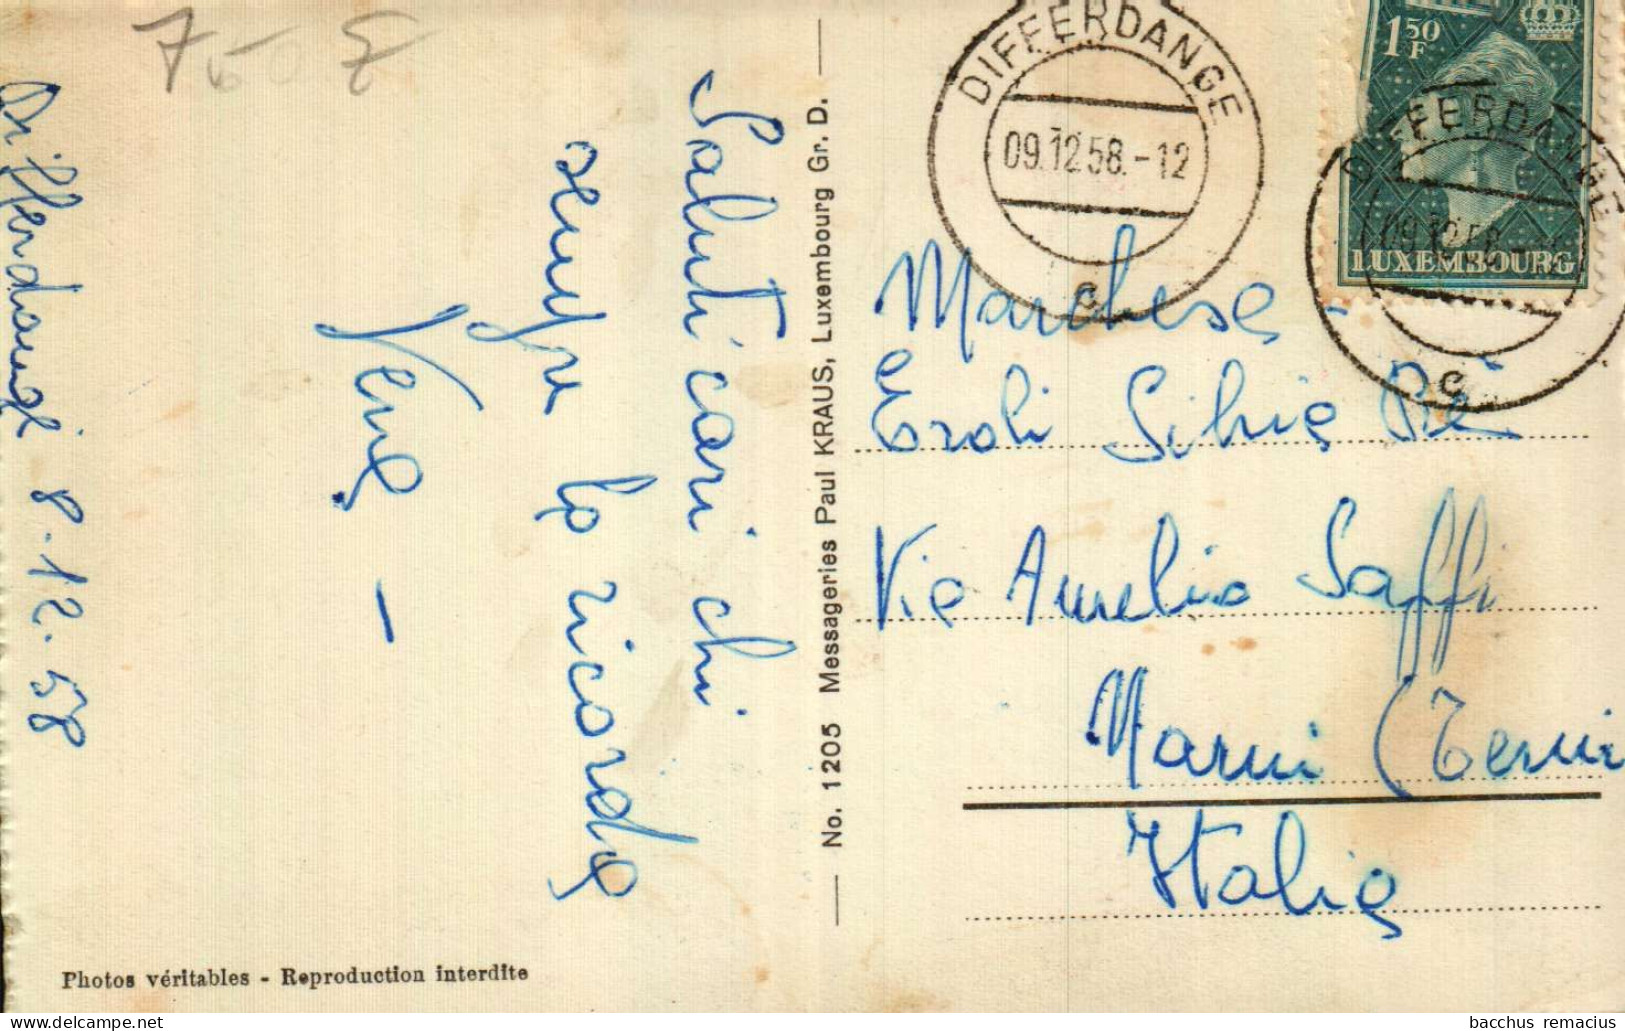 Differdange 8.12.58
Saluti cari chi
sempre la ricorda
DIFFERDANGE
09.12.58.-12
C
1 50 F
LUXEMBOURG
DIFFERDANGE
09.12.58.-12
C
No. 1205 Messageries Paul KRAUS, Luxembourg Gr. D.
Marchesa -
Eroli Silvia
Via Aurelio Saffi
Narni (Terni
Italia
Photos véritables - Reproduction interdite
bacchus remacius